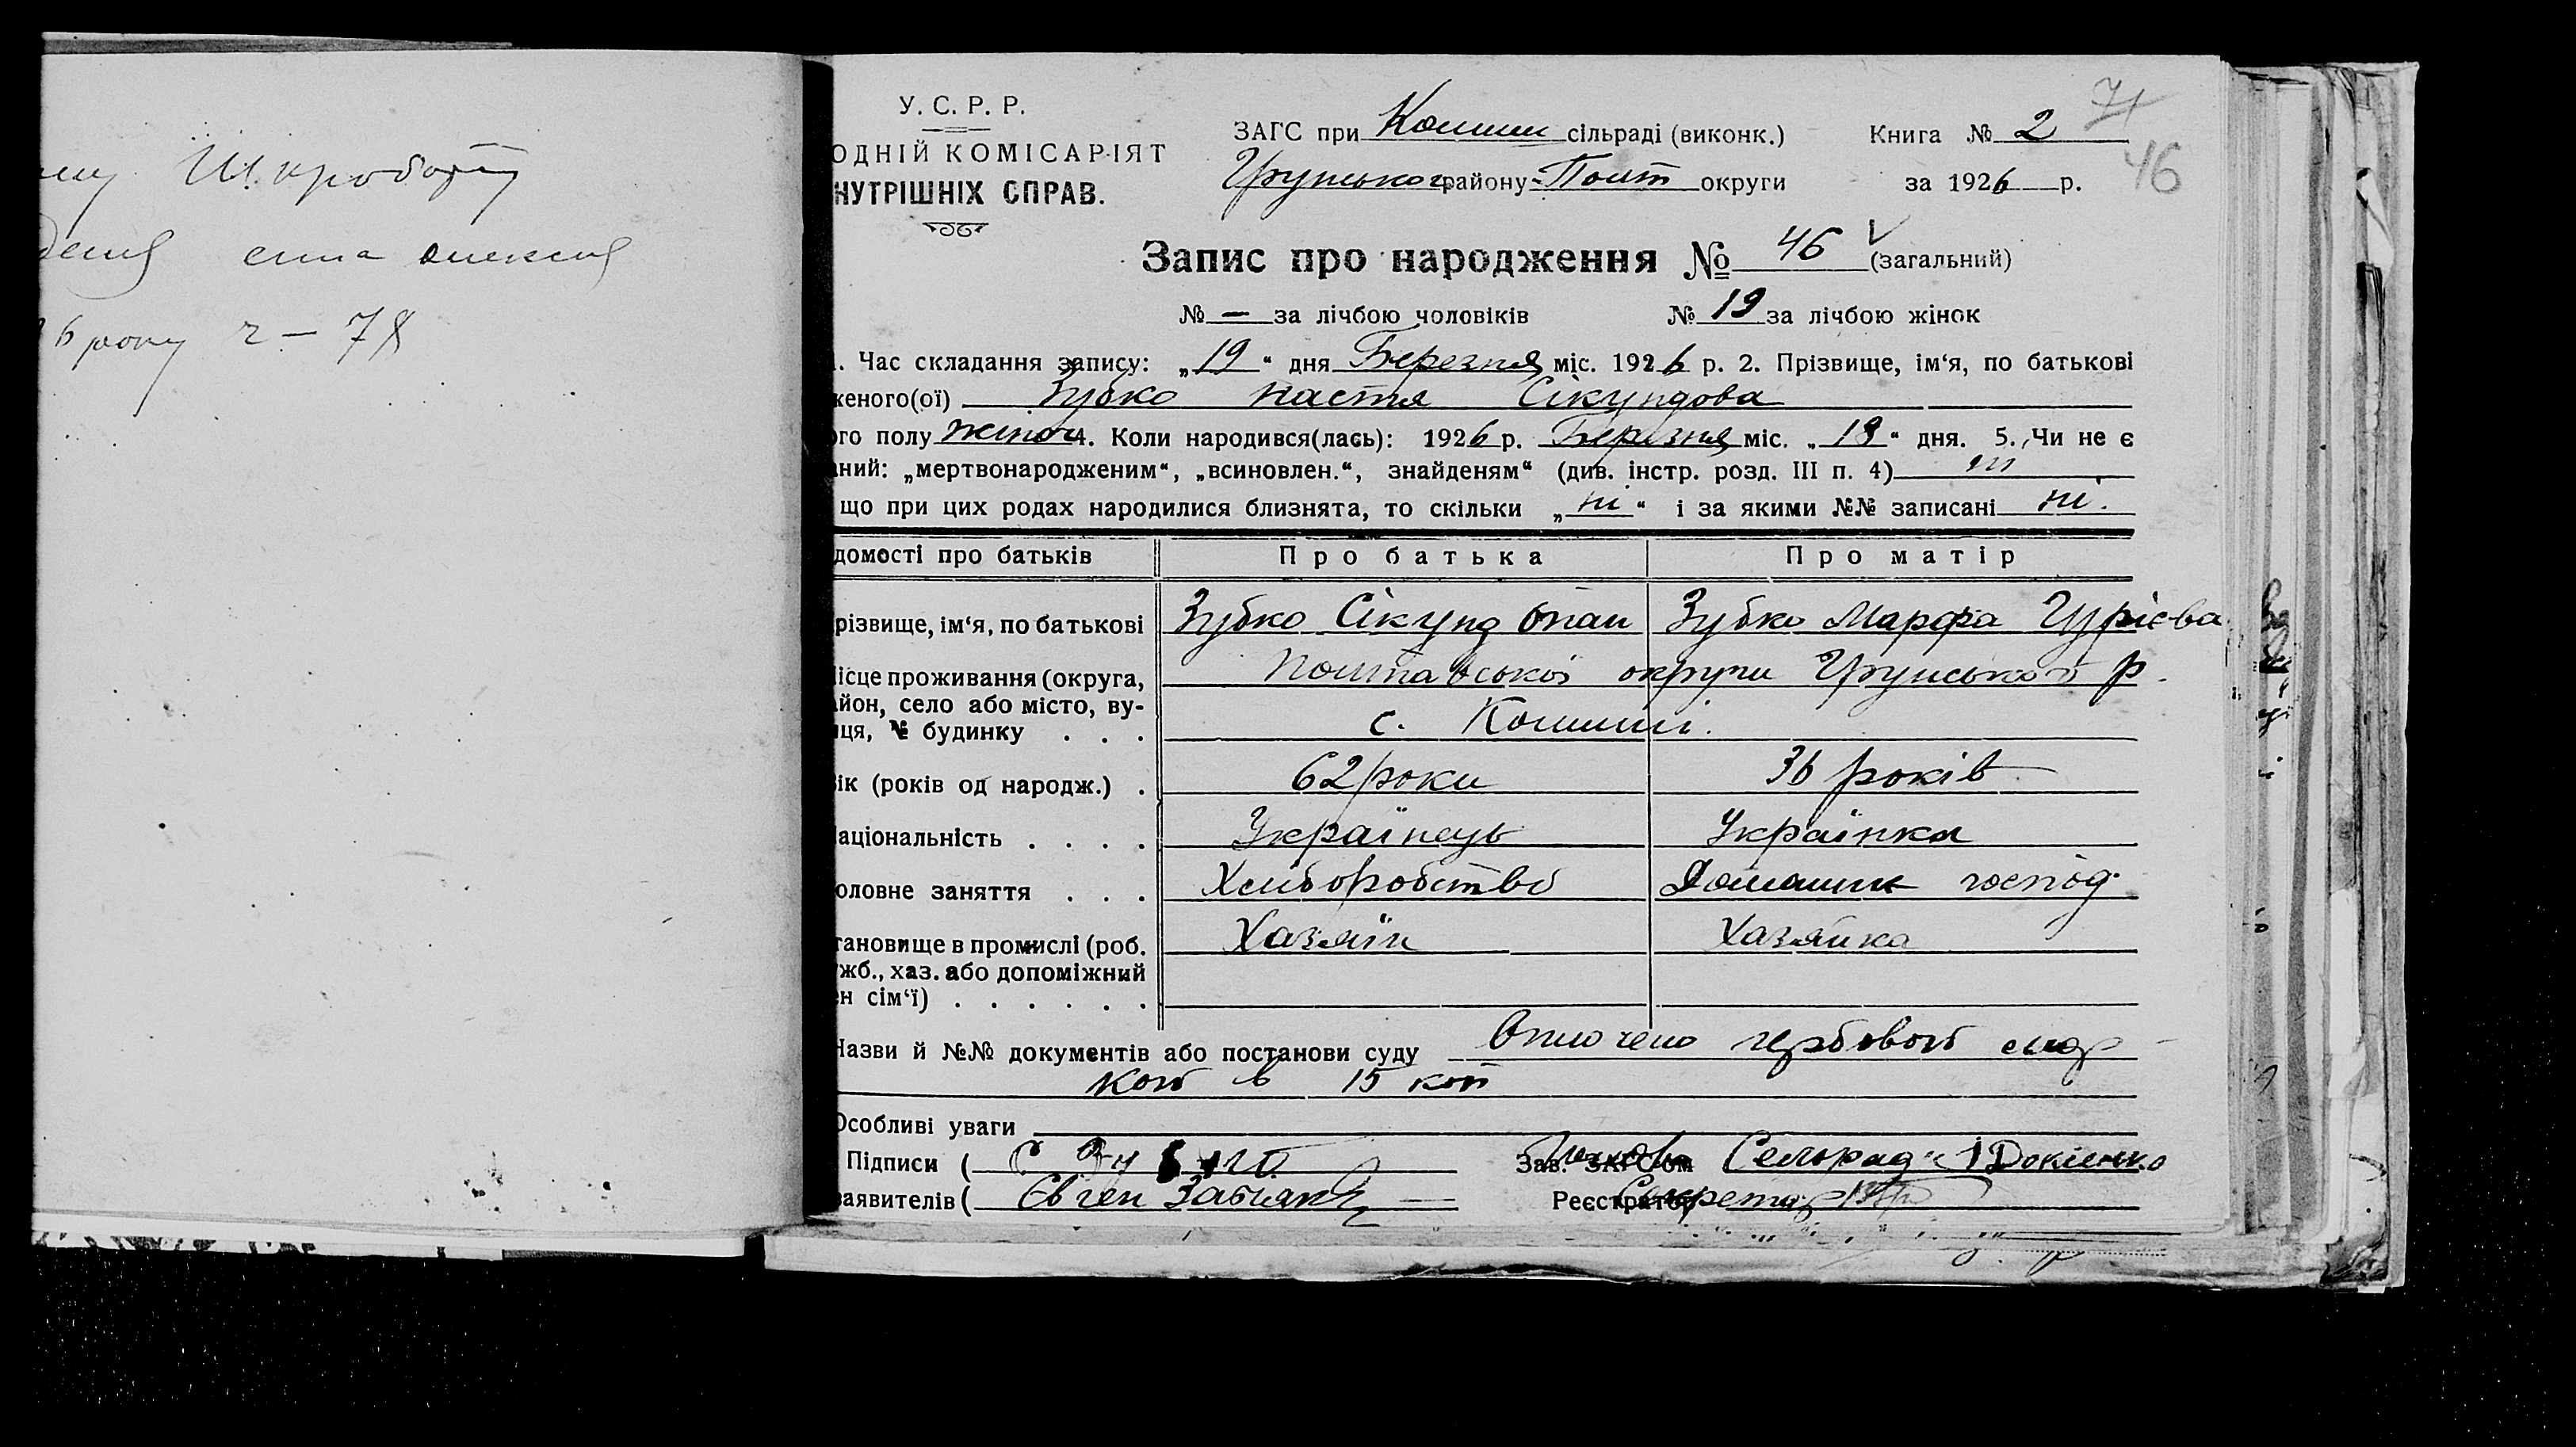 Шкроботу
6 року ч – 78
У. С. Р. Р.
ОДНІЙ КОМІСАРІЯТ
НУТРІШНІХ СПРАВ.
ЗАГС при Комиши сільраді (виконк.)
Книга № 2
71
Грунського району Полт округи
за 1926 р.
46
Запис про народження № 46 (загальний)
№ — за лічбою чоловіків № 19 за лічбою жінок
1. Час складання запису: „19“ дня Березня міс. 1926 р. 2. Прізвище, ім‘я, по батькові
женого(ої) Зубко Настя Сікундова
ого полу жіноч 4. Коли народився(лась): 1926 р. Березня міс. „18“ дня. 5. Чи не є
аний: „мертвонародженим“, „всиновлен.“, знайденям“ (див. інстр. розд. III п. 4) ні
що при цих родах народилися близнята, то скільки „ні“ і за якими №№ записані ні.
домості про батьків Про батька Про матір
різвище, ім‘я, по батькові Зубко Сікунд Опан Зубко Марфа Гурієва
ісце проживання (округа, Полтавської округи Грунського р.
айон, село або місто, ву-
ця, № будинку . . . с. Комиші.
ік (років од народж.) . 62 роки 36 років
аціональність . . . . Українець Українка
оловне заняття . . . Хліборобство Домашнє господ.
тановище в промислі (роб. Хазяїн Хазяйка
жб., хаз. або допоміжний
ен сім‘ї) . . . . . .
Назви й №№ документів або постанови суду Вплочено гербовой мар-
кой в 15 коп
Особливі уваги
Підписи ( С Зубко Зав. ЗАГС‘ом Голова Сельради Докієнко
заявителів ( Євген Реєстратор Секретар